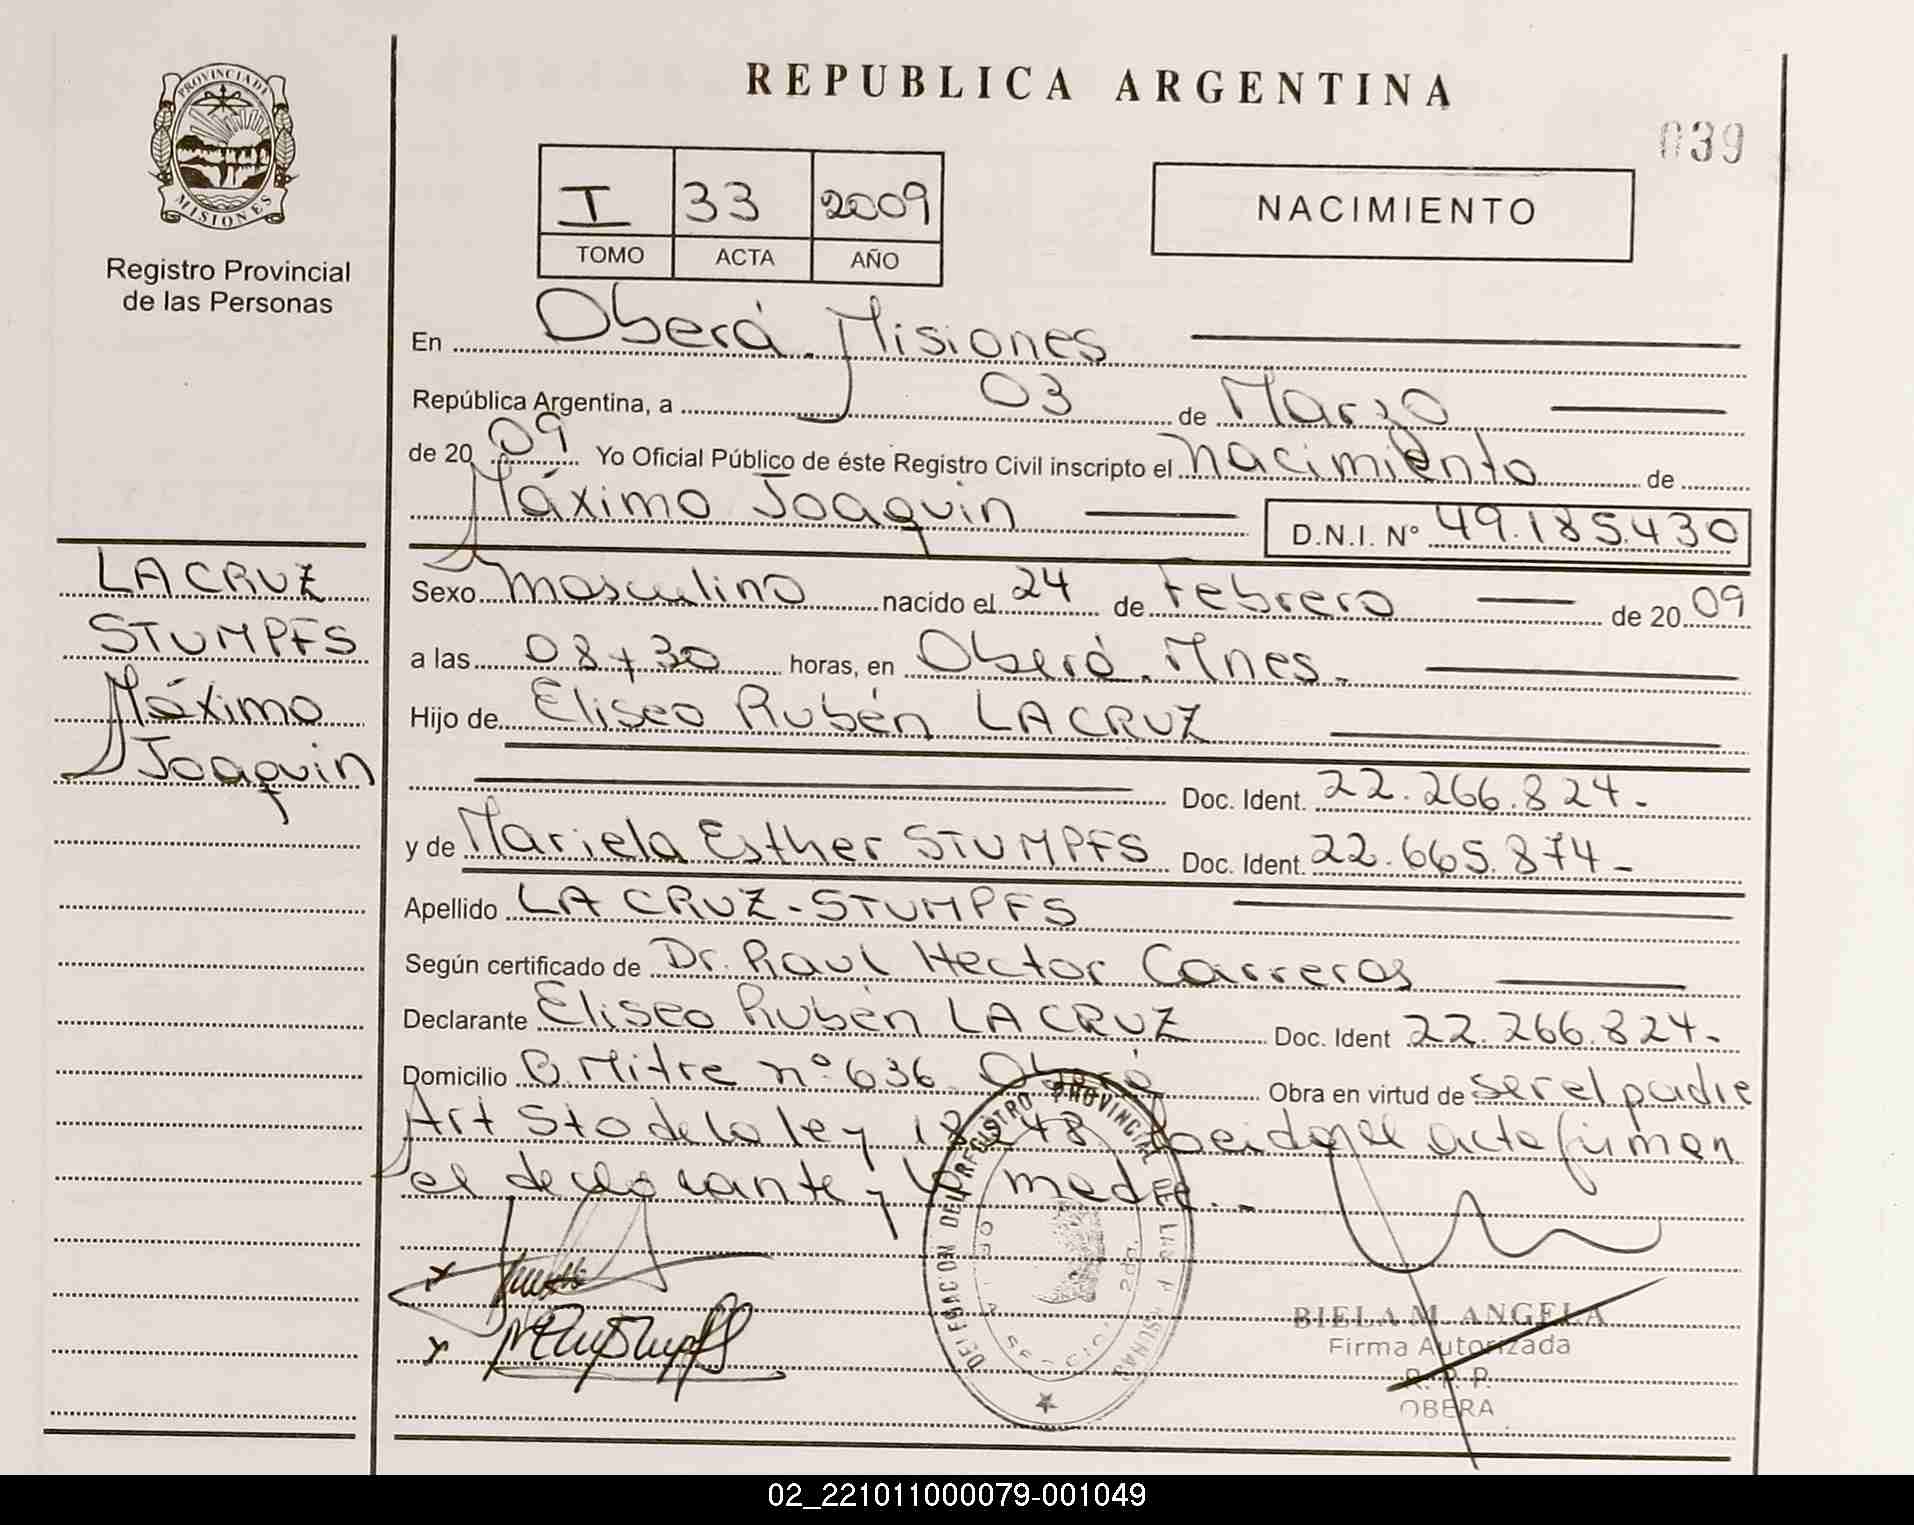 PROVINCIA DE
MISIONES
Registro Provincial
de las Personas
LA CRUZ
STUMPFS
Máximo
Joaquin
REPUBLICA ARGENTINA
039
I 33 2009
TOMO ACTA AÑO
NACIMIENTO
En Oberá. Misiones
República Argentina, a 03 de Marzo
de 20 09 Yo Oficial Público de éste Registro Civil inscripto el nacimiento de
Máximo Joaquin D.N.I. N° 49.185.430
Sexo masculino nacido el 24 de Febrero de 20 09
a las 08 y 30 horas, en Oberá. Mnes.
Hijo de Eliseo Rubén LA CRUZ
Doc. Ident. 22.266.824.-
y de Mariela Esther STUMPFS Doc. Ident. 22.665.874-
Apellido LA CRUZ-STUMPFS
Según certificado de Dr. Raul Hector Carreras
Declarante Eliseo Rubén LA CRUZ Doc. Ident 22.266.824-
Domicilio B. Mitre n° 636. Oberá Obra en virtud de ser el padre
Art 5to de la ley 18248. Leida el acta firman
el declarante y la madre.-
DELEGACION DEL REGISTRO PROVINCIAL DE LAS PERSONAS
BIELA M. ANGELA
Firma Autorizada
R. P. P.
OBERA
02_221011000079-001049